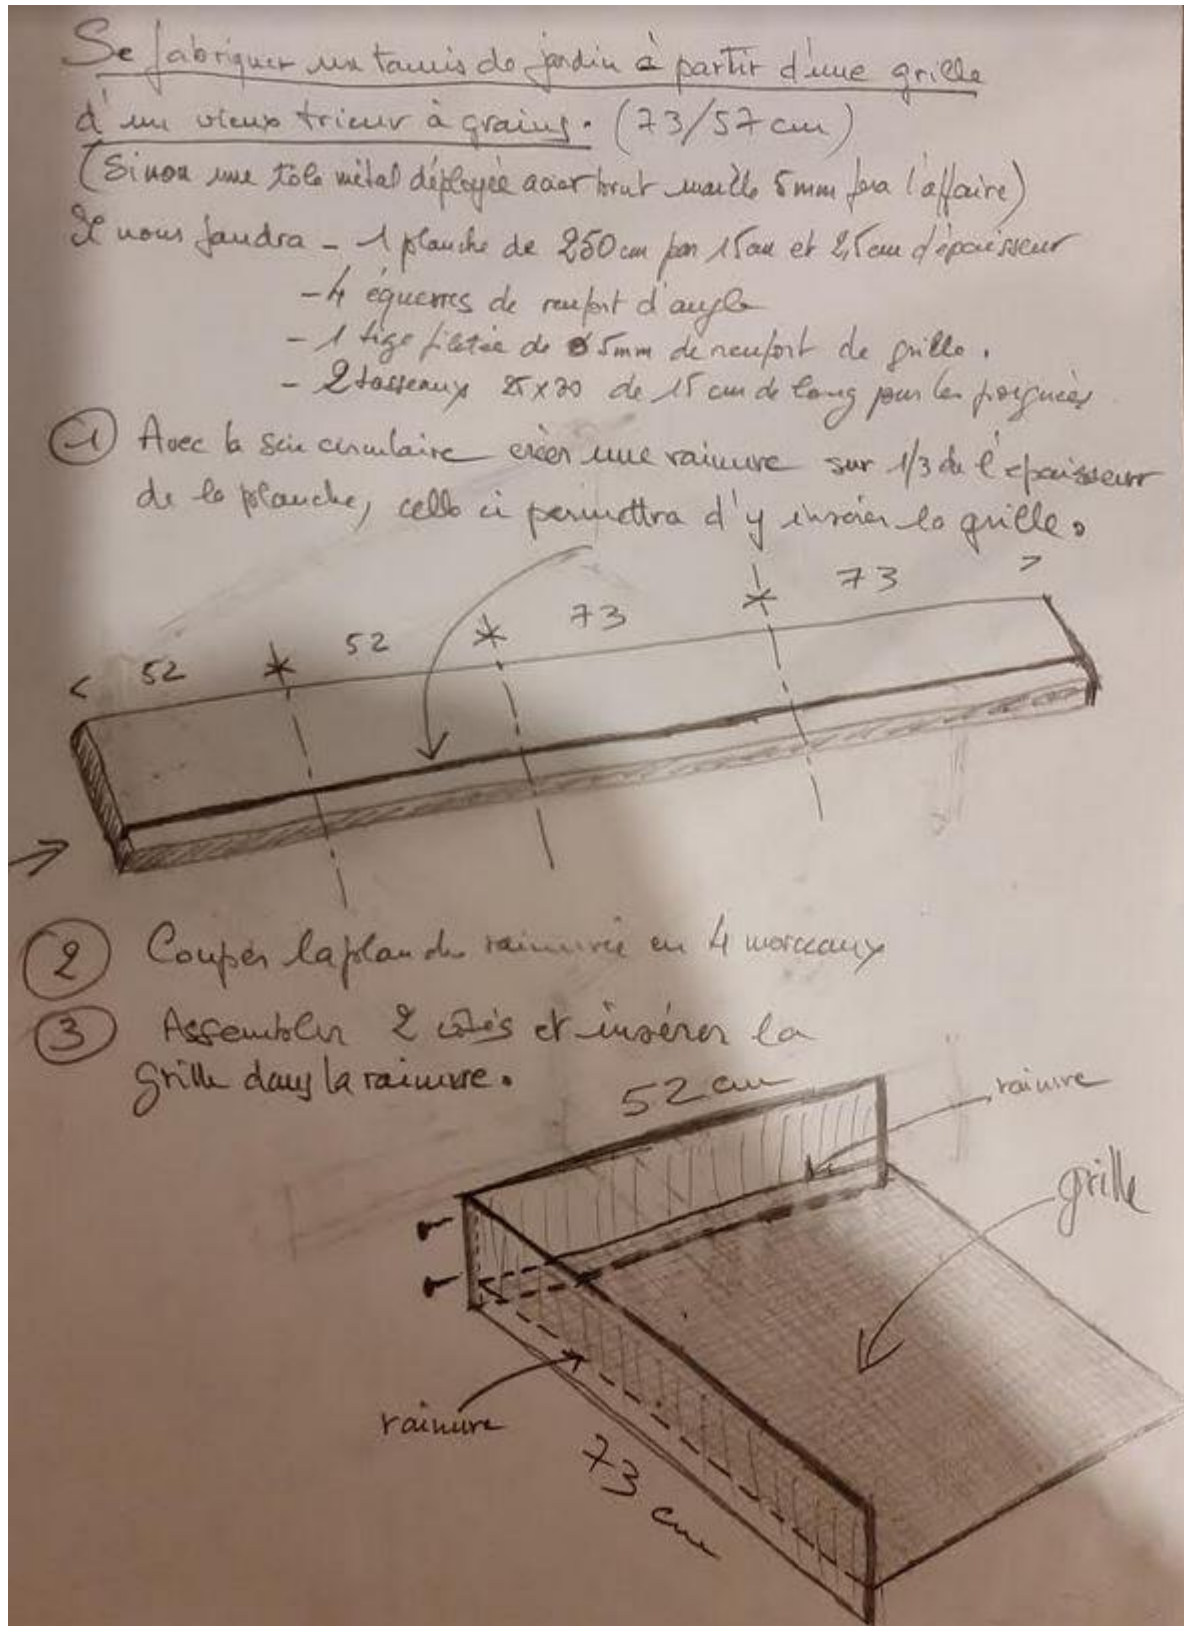 Se fabriquer un tamis de jardin à partir d'une grille
d'un vieux trieur à grains. (73/57 cm)
(Sinon une tôle métal déployée acier brut maille 5mm fera l'affaire)
Il nous faudra - 1 planche de 250 cm par 15 cm et 2,5 cm d'épaisseur
- 4 équerres de renfort d'angle
- 1 tige filetée de ø 5mm de renfort de grille.
- 2 tasseaux 25x30 de 15 cm de long pour les poignées
1 Avec la scie circulaire créer une rainure sur 1/3 de l'épaisseur
de la planche, celle ci permettra d'y insérer la grille.
< 52 52 73 73 >
2 Couper la planche rainurée en 4 morceaux
3 Assembler 2 côtés et insérer la
grille dans la rainure.
52 cm
rainure
grille
rainure
73 cm